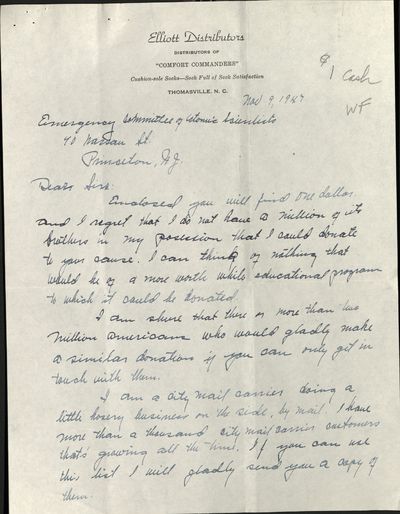 Elliott Distributors
DISTRIBUTORS OF
"COMFORT COMMANDERS"
Cushion-sole Socks—Sock Full of Sock Satisfaction
THOMASVILLE, N. C.
$1 Cash
WF
Nov 9, 1947
Emergency Committee of Atomic Scientists
90 Nassau St.
Princeton, N.J.
Dear Sirs:
Enclosed you will find one dollar
and I regret that I do not have a million of its
brothers in my possesion that I could donate
to your cause. I can think of nothing that
would be of a more worth while educational program
to which it could be donated.
I am shure that there is more than two
million americans who would gladly make
a similar donation if you can only get in
touch with them.
I am a city mail carrier doing a
little hosery business on the side, by mail. I have
more than a thousand city mail carrier customers
that's growing all the time. If you can use
this list I will gladly send you a copy of
them.